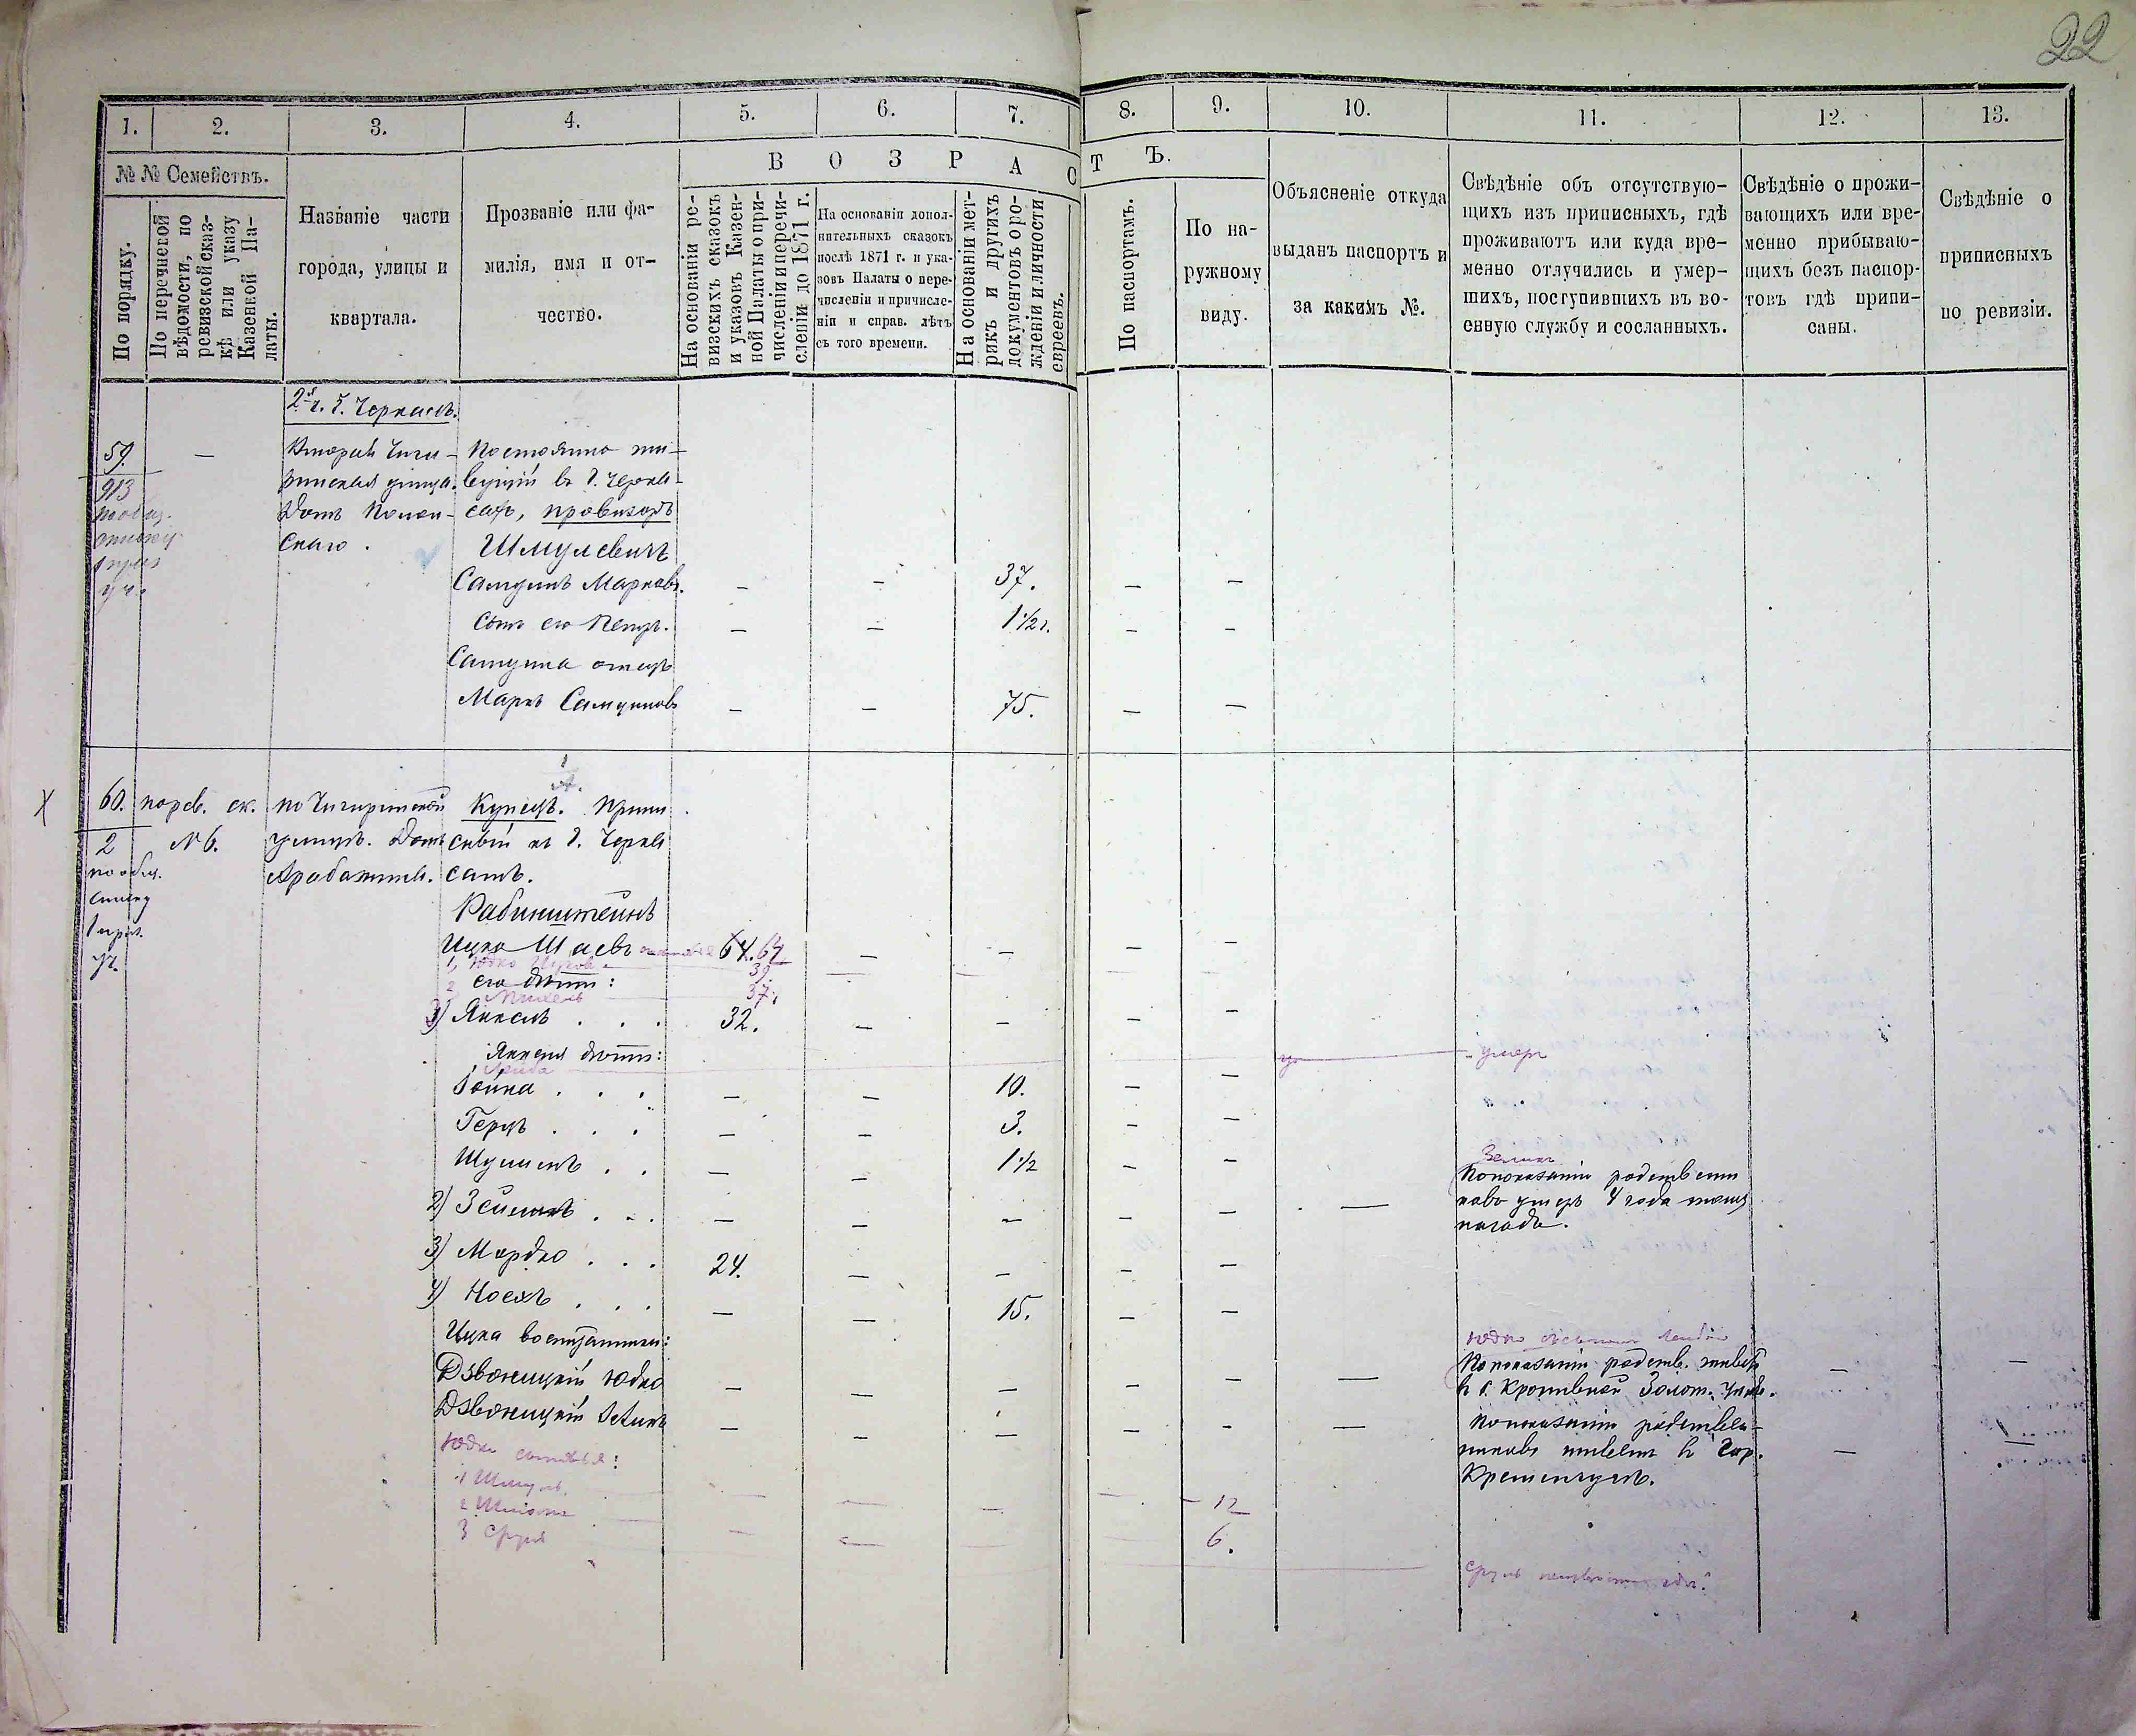 22
1. 2. 3. 4. 5. 6. 7. 8. 9. 10. 11. 12. 13.
№ № Семействъ.
В О З Р А С Т Ъ.
По порядку.
По перечневой
вѣдомости, по
ревизской сказ-
кѣ или указу
Казенной Па-
латы.
Названіе части
города, улицы и
квартала.
Прозваніе или фа-
милія, имя и от-
чество.
На основаніи ре-
визскихъ сказокъ
и указовъ Казен-
ной Палаты о при-
численіи и перечи-
сленіи до 1871 г.
На основаніи допол-
нительныхъ сказокъ
послѣ 1871 г. и ука-
зовъ Палаты о пере-
численіи и причисле-
ніи и справ. лѣтъ
съ того времени.
На основаніи мет-
рикъ и другихъ
документовъ о ро-
жденіи и личности
евреевъ.
По паспортамъ.
По на-
ружному
виду.
Объясненіе откуда
выданъ паспортъ и
за какимъ №.
Свѣдѣніе объ отсутствую-
щихъ изъ приписныхъ, гдѣ
проживаютъ или куда вре-
менно отлучились и умер-
шихъ, поступившихъ въ во-
енную службу и сосланныхъ.
Свѣдѣніе о прожи-
вающихъ или вре-
менно прибываю-
щихъ безъ паспор-
товъ гдѣ припи-
саны.
Свѣдѣніе о
приписныхъ
по ревизіи.
2й ч. г. Черкасъ.
59. — Вторая Чиги- Постоянно жи-
913 ринская улица. вущій въ г. Черка-
Домъ сахъ, провизоръ
скаго. Шмулевичъ
1 приз. Самуилъ Марковъ. — — 37. — —
уч. Сынъ его Петръ. — — 1½ г. — —
Самуила отецъ
Маркъ Самуиловъ — — 75. — —
X 60. по рев. ск. по Чигиринской Купецъ. Припи
2 № 6. улицѣ. Домъ сный къ г. Черка
по общ. Арабажина. самъ.
списку Рабинштейнъ
1 приз. Ицко Шаевъ 64. 64 — — — —
уч. 1, Юдко Ицковъ 39
его дѣти:
2 37,
3) Янкель . . . 32. — — — —
Янкеля дѣти: умеръ
Гойна . . . — — 10. — —
Герцъ . . . — — 3. — —
Шулимъ . . — — 1½ — —
Зелинъ
По показанію родственни
2) Зейликъ . . . — — — — — — ковъ умеръ 4 года тому
назадъ.
3) Мордко . . . 24. — — — —
4) Носехъ . . . — — 15. — —
Ицка воспитанники:
Дзвоницкій Юдко — — — — — — По показанію родств. живетъ — —
въ г. Кропивной Золот. уѣзд.
Дзвоницкій — — — — — — По показанію родствен-
никовъ живетъ въ Гор. — —
Кременчугѣ.
Юдки сыновья:
1 Шмуль.
2 — — — — — 12
3 Сруль — — — — 6.
Сруль неизвѣстно гдѣ.